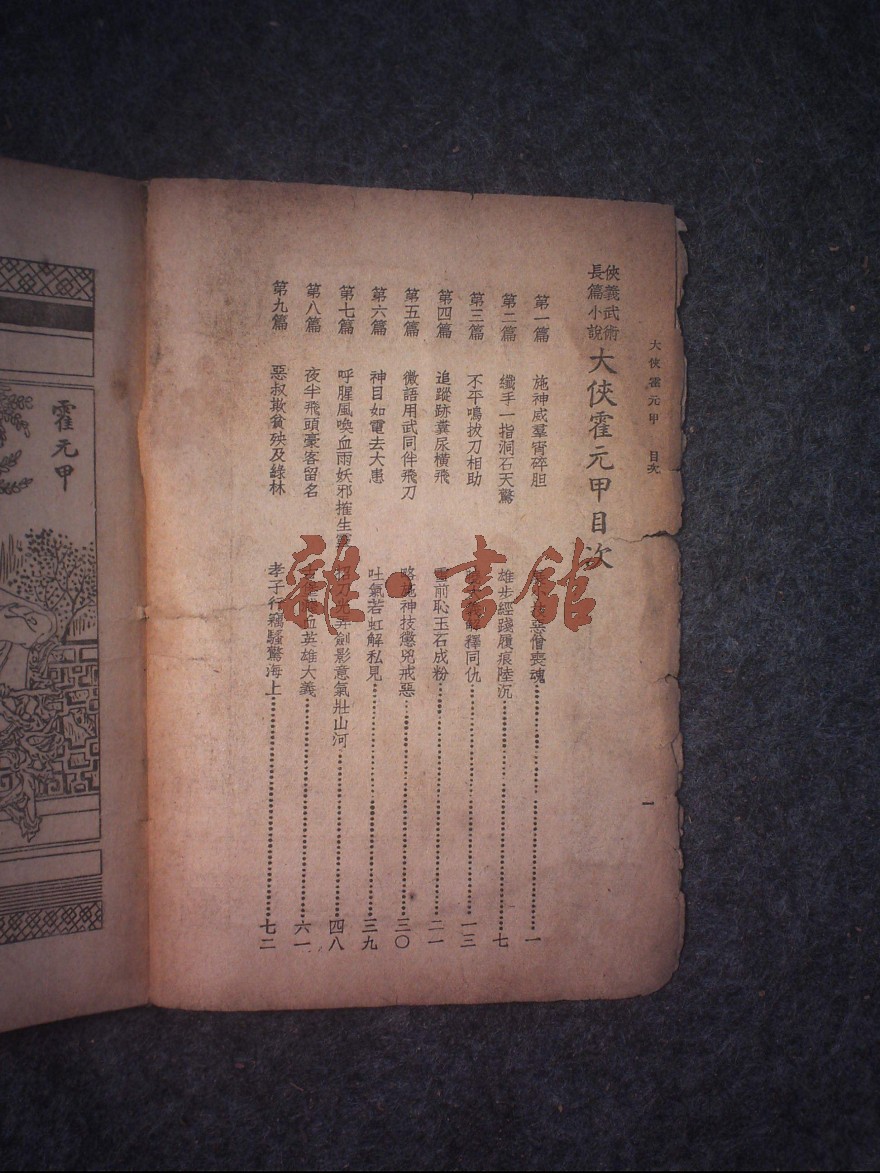 大俠霍元甲 目次
一
俠義武術長篇小說 大俠霍元甲目次
第一篇 施神威羣宵碎胆 惡僧喪魂 一
第二篇 纖手一指洞石天驚 雄步經踐履痕陸沉 七
第三篇 不平鳴拔刀相助 釋同仇 一三
第四篇 追蹤跡糞尿橫飛 雪前恥玉石成粉 二一
第五篇 微語用武同伴飛刀 略施神技懲兇戒惡 三〇
第六篇 神目如電去大患 吐氣若虹解私見 三九
第七篇 呼腥風喚血雨妖邪摧生靈 劍影意氣壯山河 四八
第八篇 夜半飛頭豪客留名 血英雄大義 六一
第九篇 惡叔欺貧殃及綠林 孝子行竊騷驚海上 七二
霍元甲
雜·書館